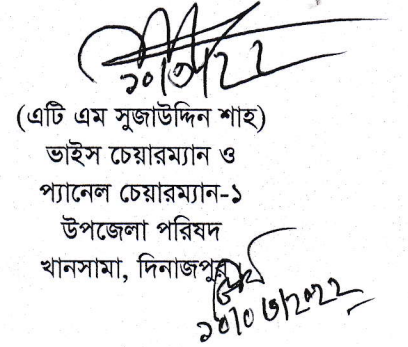 ১০/৩/২২
(এটি এম সুজাউদ্দিন শাহ)
ভাইস চেয়ারম্যান ও
প্যানেল চেয়ারম্যান-১
উপজেলা পরিষদ
খানসামা, দিনাজপুর
১০/০৩/২০২২